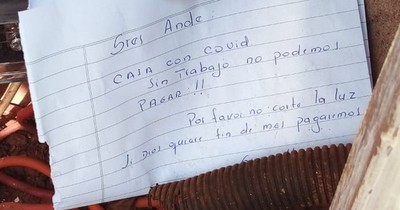 Sres Ande.
CASA con covid
Sin Trabajo no podemos
PAGAR !!
Por favor no corte la luz
Si Dios quiere fin de mes pagaremos